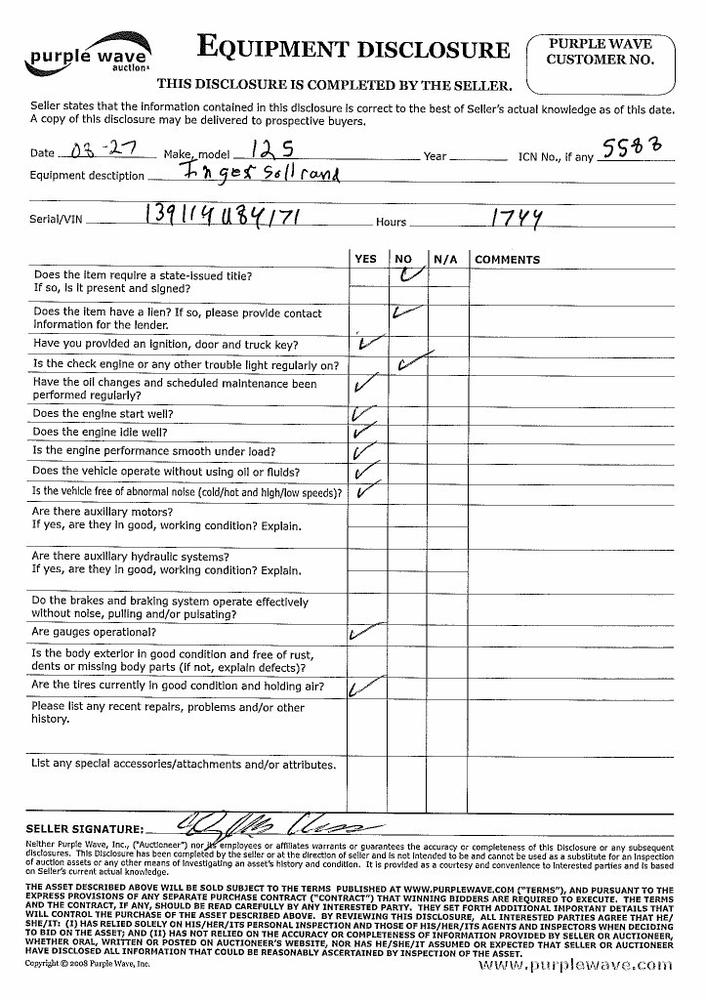 purple wave
auction
EQUIPMENT DISCLOSURE
PURPLE WAVE
CUSTOMER NO.
THIS DISCLOSURE IS COMPLETED BY THE SELLER.
Seller states that the information contained in this disclosure is correct to the best of Seller's actual knowledge as of this date.
A copy of this disclosure may be delivered to prospective buyers.
Date 03-27 Make, model 125 Year ICN No., if any 5583
Equipment desctiption Ingersollrand
Serial/VIN 139114U84171 Hours 1744
YES NO N/A COMMENTS
Does the item require a state-issued title?
If so, is it present and signed?
Does the item have a lien? If so, please provide contact
information for the lender.
Have you provided an ignition, door and truck key?
Is the check engine or any other trouble light regularly on?
Have the oil changes and scheduled maintenance been
performed regularly?
Does the engine start well?
Does the engine idle well?
Is the engine performance smooth under load?
Does the vehicle operate without using oil or fluids?
Is the vehicle free of abnormal noise (cold/hot and high/low speeds)?
Are there auxiliary motors?
If yes, are they in good, working condition? Explain.
Are there auxiliary hydraulic systems?
If yes, are they in good, working condition? Explain.
Do the brakes and braking system operate effectively
without noise, pulling and/or pulsating?
Are gauges operational?
Is the body exterior in good condition and free of rust,
dents or missing body parts (if not, explain defects)?
Are the tires currently in good condition and holding air?
Please list any recent repairs, problems and/or other
history.
List any special accessories/attachments and/or attributes.
SELLER SIGNATURE:
Neither Purple Wave, Inc., ("Auctioneer") nor its employees or affiliates warrants or guarantees the accuracy or completeness of this Disclosure or any subsequent
disclosures. This Disclosure has been completed by the seller or at the direction of seller and is not intended to be and cannot be used as a substitute for an inspection
of auction assets or any other means of investigating an asset's history and condition. It is provided as a courtesy and convenience to interested parties and is based
on Seller's current actual knowledge.
THE ASSET DESCRIBED ABOVE WILL BE SOLD SUBJECT TO THE TERMS PUBLISHED AT WWW.PURPLEWAVE.COM ("TERMS"), AND PURSUANT TO THE
EXPRESS PROVISIONS OF ANY SEPARATE PURCHASE CONTRACT ("CONTRACT") THAT WINNING BIDDERS ARE REQUIRED TO EXECUTE. THE TERMS
AND THE CONTRACT, IF ANY, SHOULD BE READ CAREFULLY BY ANY INTERESTED PARTY. THEY SET FORTH ADDITIONAL IMPORTANT DETAILS THAT
WILL CONTROL THE PURCHASE OF THE ASSET DESCRIBED ABOVE. BY REVIEWING THIS DISCLOSURE, ALL INTERESTED PARTIES AGREE THAT HE/
SHE/IT: (I) HAS RELIED SOLELY ON HIS/HER/ITS PERSONAL INSPECTION AND THOSE OF HIS/HER/ITS AGENTS AND INSPECTORS WHEN DECIDING
TO BID ON THE ASSET; AND (II) HAS NOT RELIED ON THE ACCURACY OR COMPLETENESS OF INFORMATION PROVIDED BY SELLER OR AUCTIONEER,
WHETHER ORAL, WRITTEN OR POSTED ON AUCTIONEER'S WEBSITE, NOR HAS HE/SHE/IT ASSUMED OR EXPECTED THAT SELLER OR AUCTIONEER
HAVE DISCLOSED ALL INFORMATION THAT COULD BE REASONABLY ASCERTAINED BY INSPECTION OF THE ASSET.
Copyright © 2008 Purple Wave, Inc.
www.purplewave.com